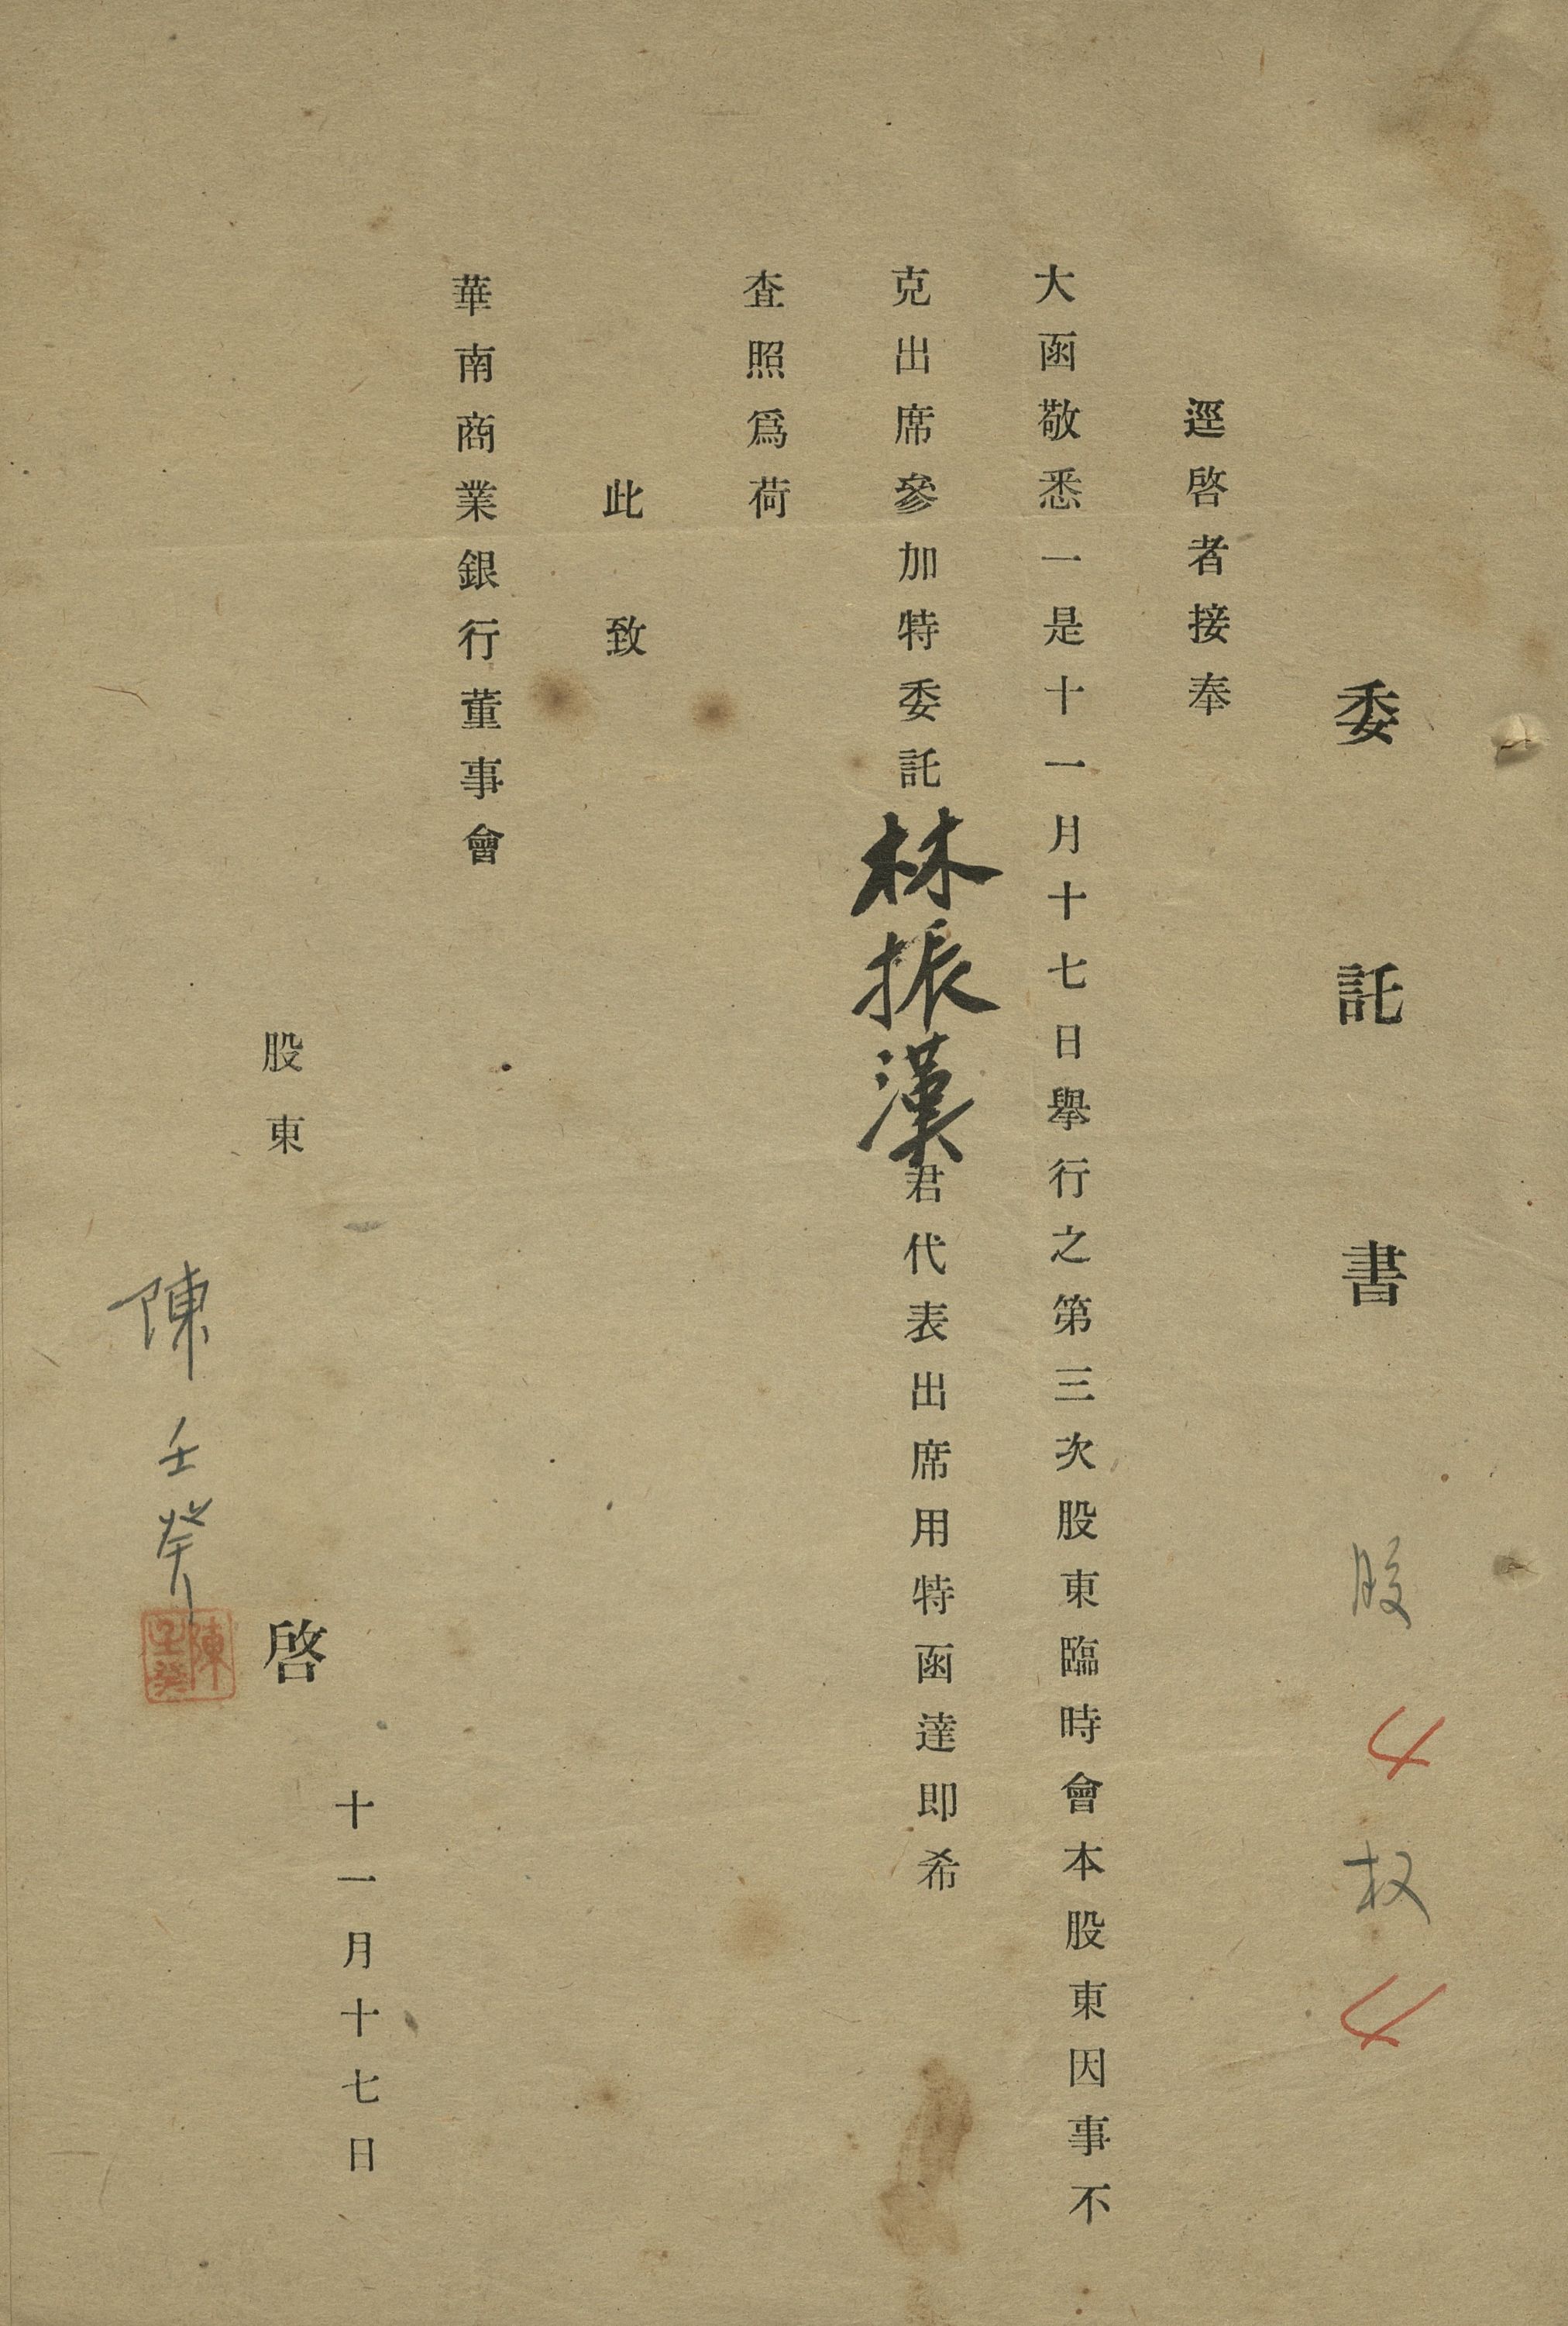 委託書 股 4 权 4
逕啓者接奉
大函敬悉一是十一月十七日舉行之第三次股東臨時會本股東因事不
克出席參加特委託林振漢君代表出席用特函達即希
査照爲荷
此致
華南商業銀行董事會
十一月十七日
股東 啓
陳壬癸
陳壬癸